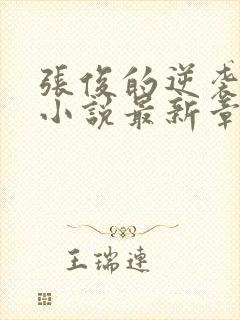 張俊的逆袭
小說最新章
王瑞連